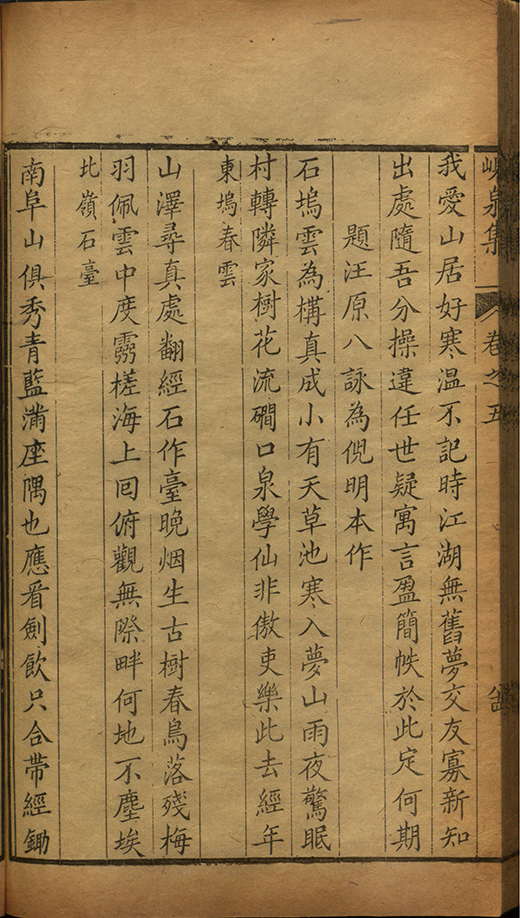 峴泉集
卷之五
我愛山居好寒溫不記時江湖無舊夢交友寡新知
出處隨吾分操違任世疑寓言盈簡帙於此定何期
題汪原八詠為倪明本作
石塢雲為構真成小有天草池寒入夢山雨夜驚眠
村轉隣家樹花流磵口泉學仙非傲吏樂此去經年
東塢春雲
山澤尋真處翻經石作臺晚烟生古樹春鳥落殘梅
羽佩雲中度靈槎海上回俯觀無際畔何地不塵埃
比嶺石臺
南阜山俱秀青藍滿座隅也應看劍飲只合帶經鋤